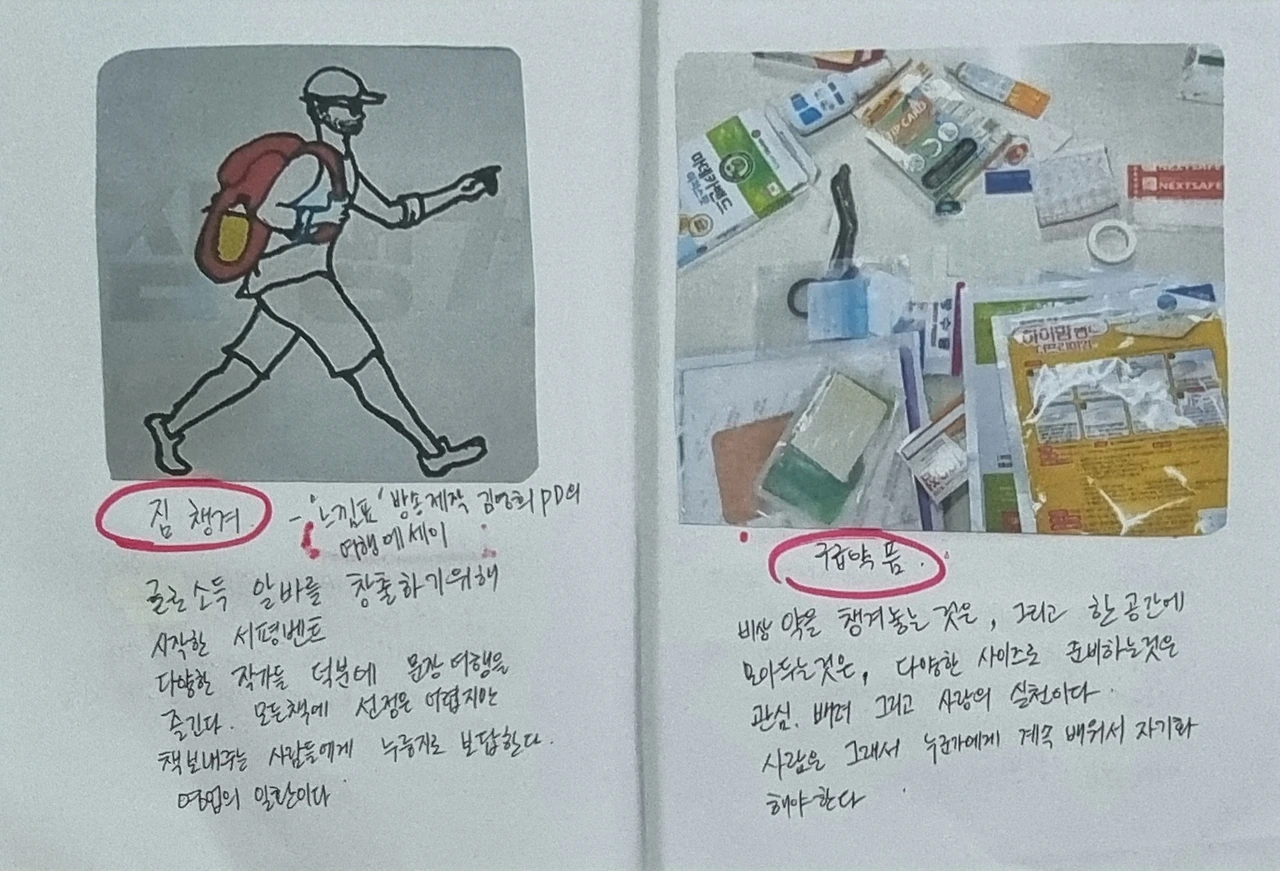 짐 챙겨
- '느낌표' 방송제작 김영희 PD의
여행에세이
글로소득 알바를 창출하기위해
시작한 서평벤트
다양한 작가들 덕분에 문장여행을
즐긴다. 모든책에 선정은 어렵지만
책보내주는 사람들에게 누룽지로 보답한다.
영업의 일환이다
마데카밴드
VIP CARD
NEXTSAFE
하이맘밴드
구급약품.
비상약을 챙겨놓는 것은, 그리고 한 공간에
모아두는것은, 다양한 사이즈로 준비하는것은
관심. 배려 그리고 사랑의 실천이다.
사람은 그래서 누군가에게 계속 배워서 자기화
해야한다.